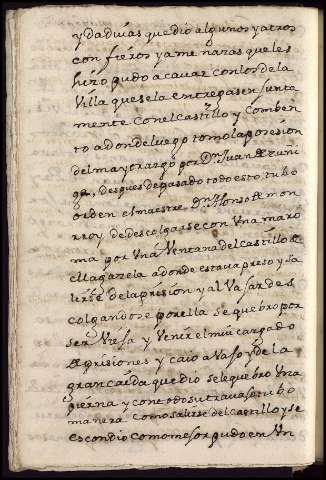 y dadivas que dio algunos y a otros
con fieros y amenazas que les
hizo pudo acavar con los de la
Villa que se la entregasen junta
mente con el castillo y comben
to a donde luego tomo la posesion
del mayorazgo por Dn Juan de zuñi
ga, despues de pasado todo esto, tubo
orden el maestre Dn Alonso de mon
rroy de descolgarse con Una maro
ma por Una Ventana del castillo de
a donde estava preso y sa
lirse de la prision y al Vajar des
colgandose por ella se quebro por
ser Vieja y Venir el mui cargado
de prisiones y caio avajo y de la
gran caida que dio se le quebro Una
pierna y con todo su travajo tubo
manera como salirse del castillo y se
escondio como mejor pudo en Un